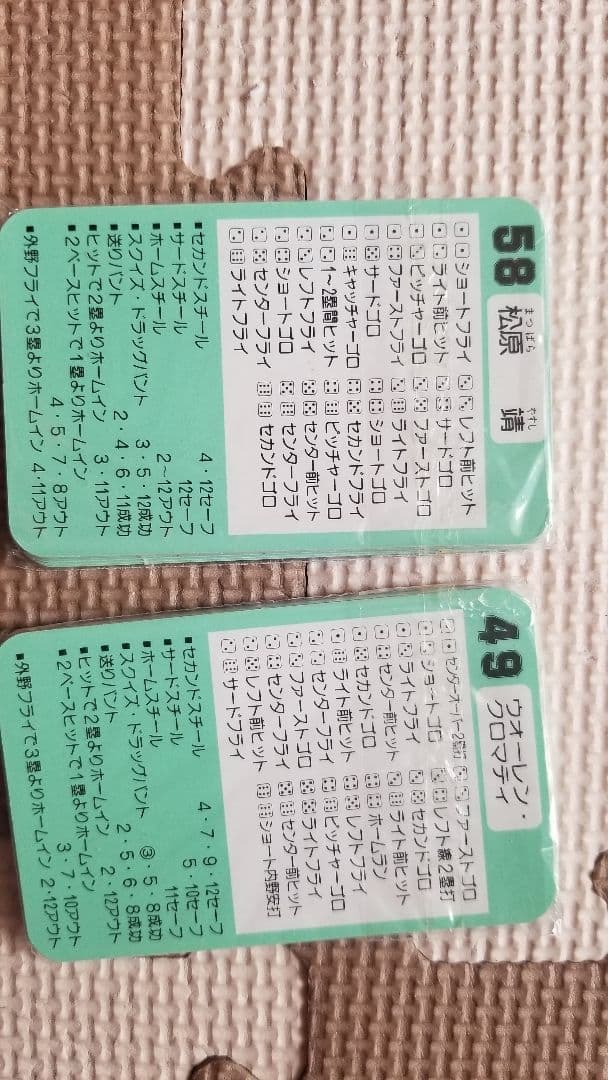 58 松原 靖
まつばら やすし
ショートフライ
ライト前ヒット
ピッチャーゴロ
ファーストフライ
サードゴロ
キャッチャーゴロ
1〜2塁間ヒット
レフトフライ
ショートゴロ
センターフライ
ライトフライ
レフト前ヒット
サードゴロ
ファーストゴロ
ライトフライ
ショートゴロ
セカンドフライ
ピッチャーゴロ
センター前ヒット
センターフライ
セカンドゴロ
■セカンドスチール 4・12セーフ
■サードスチール 12セーフ
■ホームスチール 2〜12アウト
■スクイズ・ドラッグバント 3・5・12成功
■送りバント 2・4・6・11成功
■ヒットで2塁よりホームイン 3・11アウト
■2ベースヒットで1塁よりホームイン
4・5・7・8アウト
■外野フライで3塁よりホームイン 4・11アウト
49 ウォーレン・
クロマティ
センターオーバー2塁打
ショートゴロ
ライトフライ
センター前ヒット
セカンドゴロ
ライト前ヒット
センターフライ
ファーストゴロ
センターフライ
レフト前ヒット
サードフライ
ファーストゴロ
レフト線2塁打
セカンドゴロ
ライト前ヒット
ホームラン
レフトフライ
ピッチャーゴロ
ライトフライ
センター前ヒット
ショート内野安打
■セカンドスチール 4・7・9・12セーフ
■サードスチール 5・10セーフ
■ホームスチール 11セーフ
■スクイズ・ドラッグバント ③・5・8成功
■送りバント 2・5・6・8成功
■ヒットで2塁よりホームイン 2・12アウト
■2ベースヒットで1塁よりホームイン
3・7・10アウト
■外野フライで3塁よりホームイン 2・12アウト